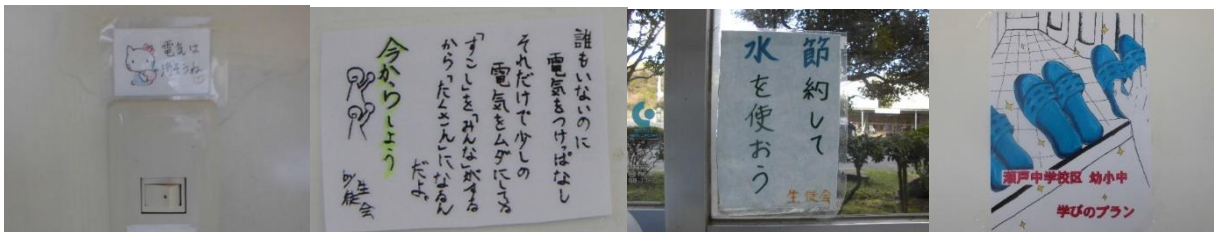 電気は
消そうね
誰もいないのに
電気をつけっぱなし
それだけで少しの
電気をムダにしてる
「すこし」を「みんな」がする
から「たくさん」になるん
だよ。
今からしよう
by生徒会
節約して
水を使おう
生徒会
瀬戸中学校区 幼小中
学びのプラン